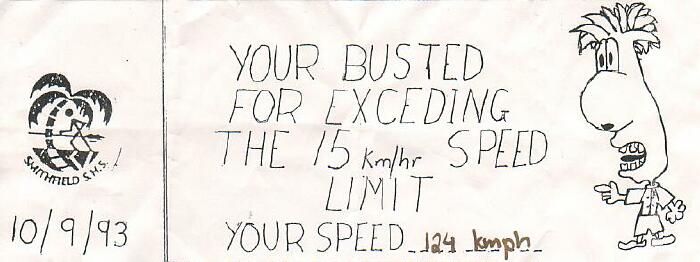 SMITHFIELD S.H.S.
10/9/93
YOUR BUSTED
FOR EXCEDING
THE 15 km/hr SPEED
LIMIT
YOUR SPEED 124 kmph